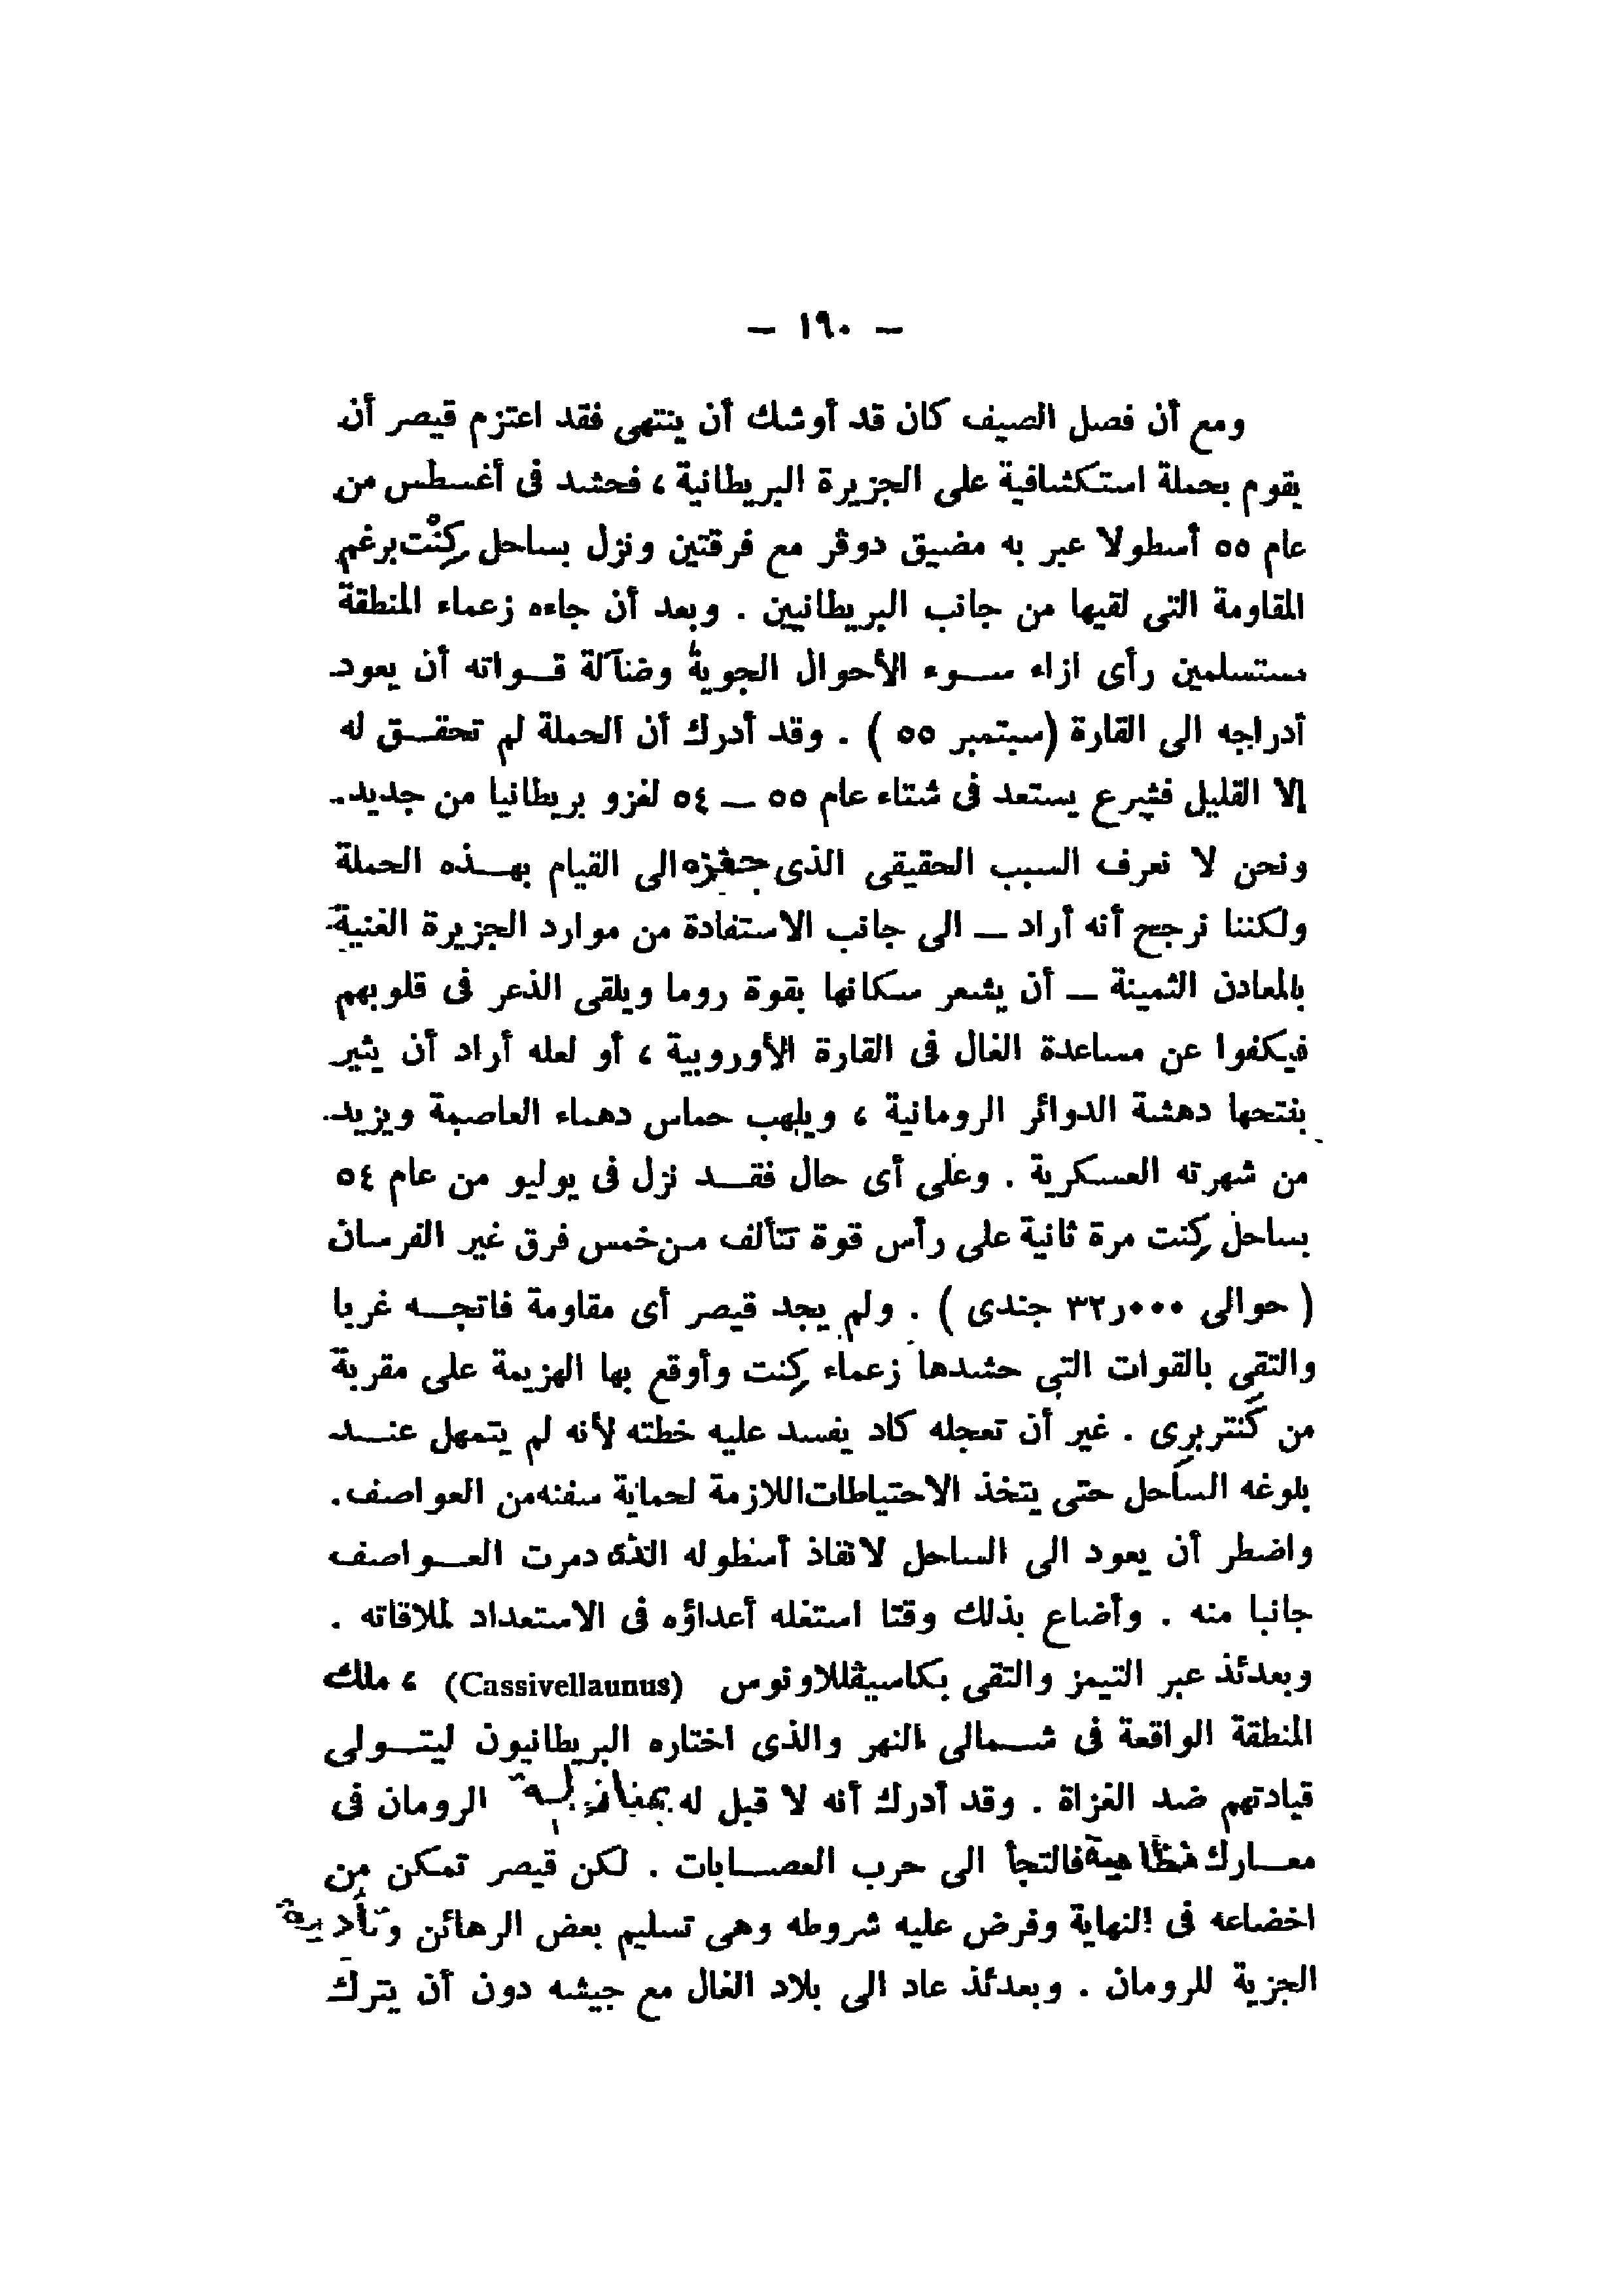 — ١٩٠ —
ومع أن فصل الصيف كان قد أوشك أن ينتهى فقد اعتزم قيصر أن
يقوم بحملة استكشافية على الجزيرة البريطانية ، فحشد فى أغسطس من
عام ٥٥ أسطولا عبر به مضيق دوڤر مع فرقتين ونزل بساحل كِنْت برغم
المقاومة التى لقيها من جانب البريطانيين . وبعد أن جاءه زعماء المنطقة
مستسلمين رأى ازاء سوء الأحوال الجوية وضآلة قواته أن يعود
أدراجه الى القارة (سبتمبر ٥٥ ) . وقد أدرك أن الحملة لم تحقق له
إلا القليل فشرع يستعد فى شتاء عام ٥٥ — ٥٤ لغزو بريطانيا من جديد.
ونحن لا نعرف السبب الحقيقى الذى حفزه الى القيام بهذه الحملة
ولكننا نرجح أنه أراد — الى جانب الاستفادة من موارد الجزيرة الغنية
بالمعادن الثمينة — أن يشعر سكانها بقوة روما ويلقى الذعر فى قلوبهم
فيكفوا عن مساعدة الغال فى القارة الأوروبية ، أو لعله أراد أن يثير
بفتحها دهشة الدوائر الرومانية ، ويلهب حماس دهماء العاصمة ويزيد
من شهرته العسكرية . وعلى أى حال فقد نزل فى يوليو من عام ٥٤
بساحل كِنت مرة ثانية على رأس قوة تتألف من خمس فرق غير الفرسان
( حوالى ٣٢ر٠٠٠ جندى ) . ولم يجد قيصر أى مقاومة فاتجه غربا
والتقى بالقوات التى حشدها زعماء كِنت وأوقع بها الهزيمة على مقربة
من كَنتربرى . غير أن تعجله كاد يفسد عليه خطته لأنه لم يتمهل عند
بلوغه الساحل حتى يتخذ الاحتياطات اللازمة لحماية سفنه من العواصف.
واضطر أن يعود الى الساحل لانقاذ أسطوله الذى دمرت العواصف
جانبا منه . وأضاع بذلك وقتا استغله أعداؤه فى الاستعداد لملاقاته .
وبعدئذ عبر التيمز والتقى بكاسيڤللاونوس (Cassivellaunus) ، ملك
المنطقة الواقعة فى شمالى النهر والذى اختاره البريطانيون ليتولى
قيادتهم ضد الغزاة . وقد أدرك أنه لا قبل له بمنازلة الرومان فى
معارك نظامية فالتجأ الى حرب العصابات . لكن قيصر تمكن من
اخضاعه فى النهاية وفرض عليه شروطه وهى تسليم بعض الرهائن وتأدية
الجزية للرومان . وبعدئذ عاد الى بلاد الغال مع جيشه دون أن يترك